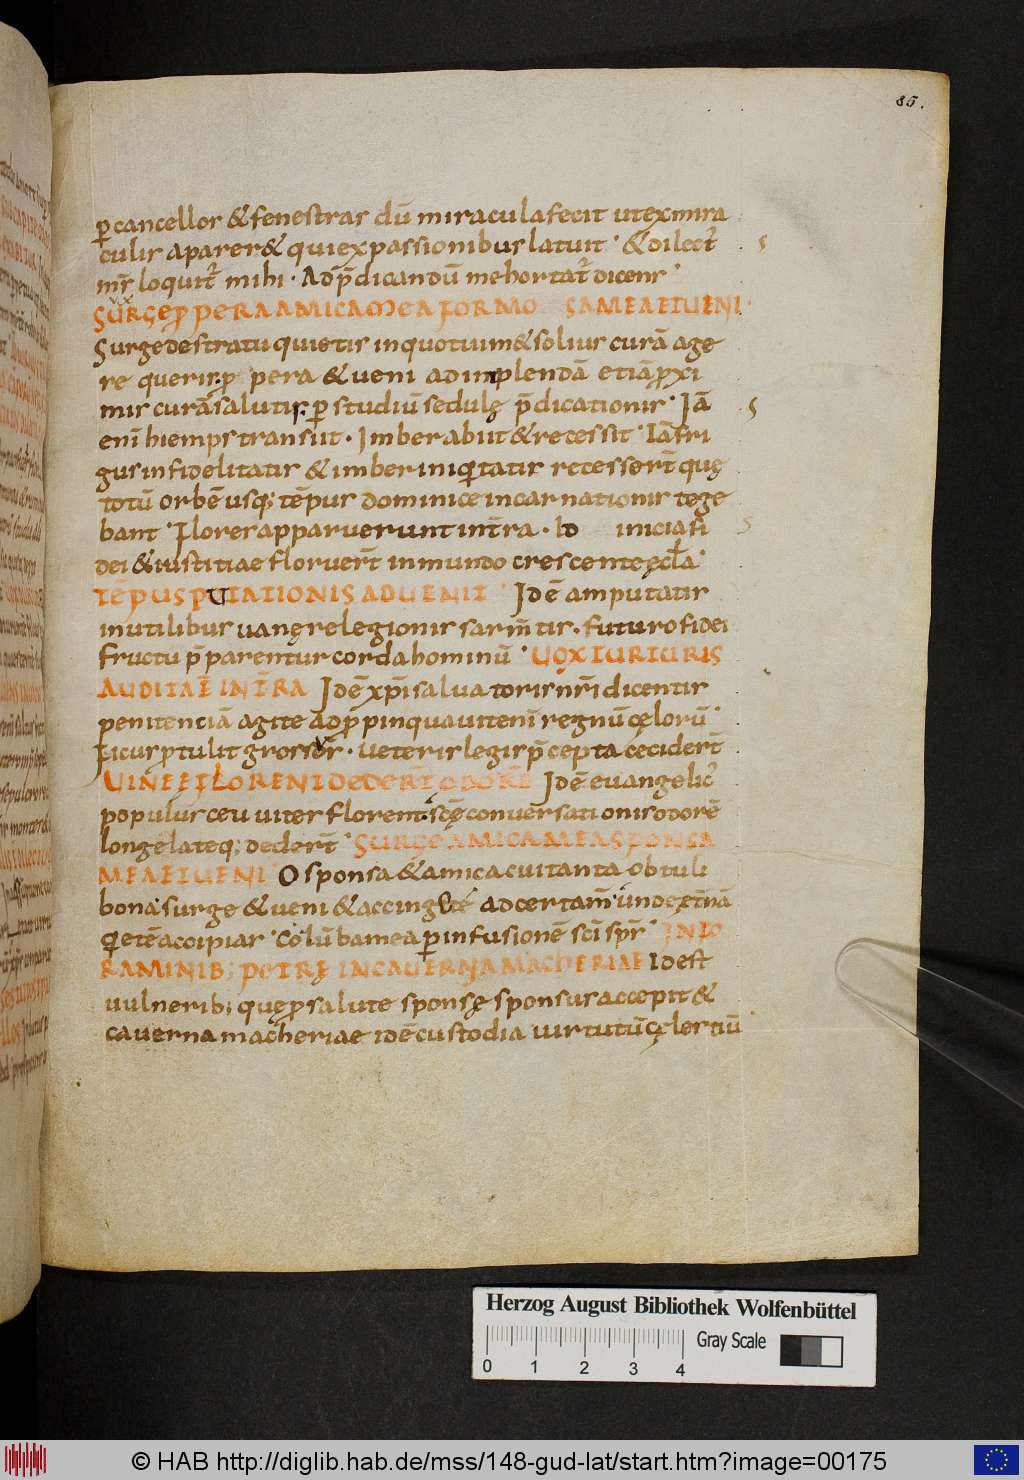 85.
ꝑ cancellos & fenestras dū miracula fecit ut ex mira
culis aparer& qui ex passionibus latuit · & dilect᷒
m̄s loquit᷒ mihi · Ad p̄dicandū me hortat᷒ dicens ·
SURGE PPERA AMICA MEA FORMO SA MEA ET UENI ·
Surge de stratu quietis in quo tuim& solius curā age
re queris. ꝓpera & veni ad implendā etiā ꝓxi
mis curā salutis. ꝑ studiū sedulę p̄dicationis · Iā
enī hiemps transiit · Imber abiit & recessit · Iā fri
gus infidelitatis & imber iniquitatis recessert̄ quę
totū orbē usq; tēpus dominice incarnationis tege
bant · Flores apparuerunt in t̄ra · Id inicia fi
dei & iustitiae floruert̄ in mundo crescente ęcła ·
TĒPUS PUTATIONIS ADUENIT · Idē amputatis
inutilibus vanę relegionis sarm̄tis · futuro fidei
fructu p̄parentur corda hominū · UOX TURTURIS
AUDITA Ē IN T̄RA Idē xp̄i salvatoris nr̄i dicentis
penitenciā agite adꝓpinquavit enī regnū cęlorū ·
Ficus ꝓtulit grossos · veteris legis p̄cepta cecidert̄
UINEE FLORENT DEDERT̄ ODORĒ Idē evangelic᷒
populus ceu vites florent. scę̄ conversationis odorē
longe lateq; dedert̄ · SURGE AMICA MEA SPONSA
MEA ET UENI · O sponsa & amica cui tanta obtuli
bona surge & veni & accing& te ad certam̄ · unde ext̄nā
quetē accipias · Colūba mea ꝑ infusionē sci sps̄ · IN FO
RAMINIB; PETRĘ IN CAUERNA MACHERIAE Id est
vulnerib; quę ꝓ salute sponsę sponsus accepit &
caverna macheriae idē custodia virtutū cęlestiū
Herzog August Bibliothek Wolfenbüttel
Gray Scale
0 1 2 3 4
© HAB http://diglib.hab.de/mss/148-gud-lat/start.htm?image=00175